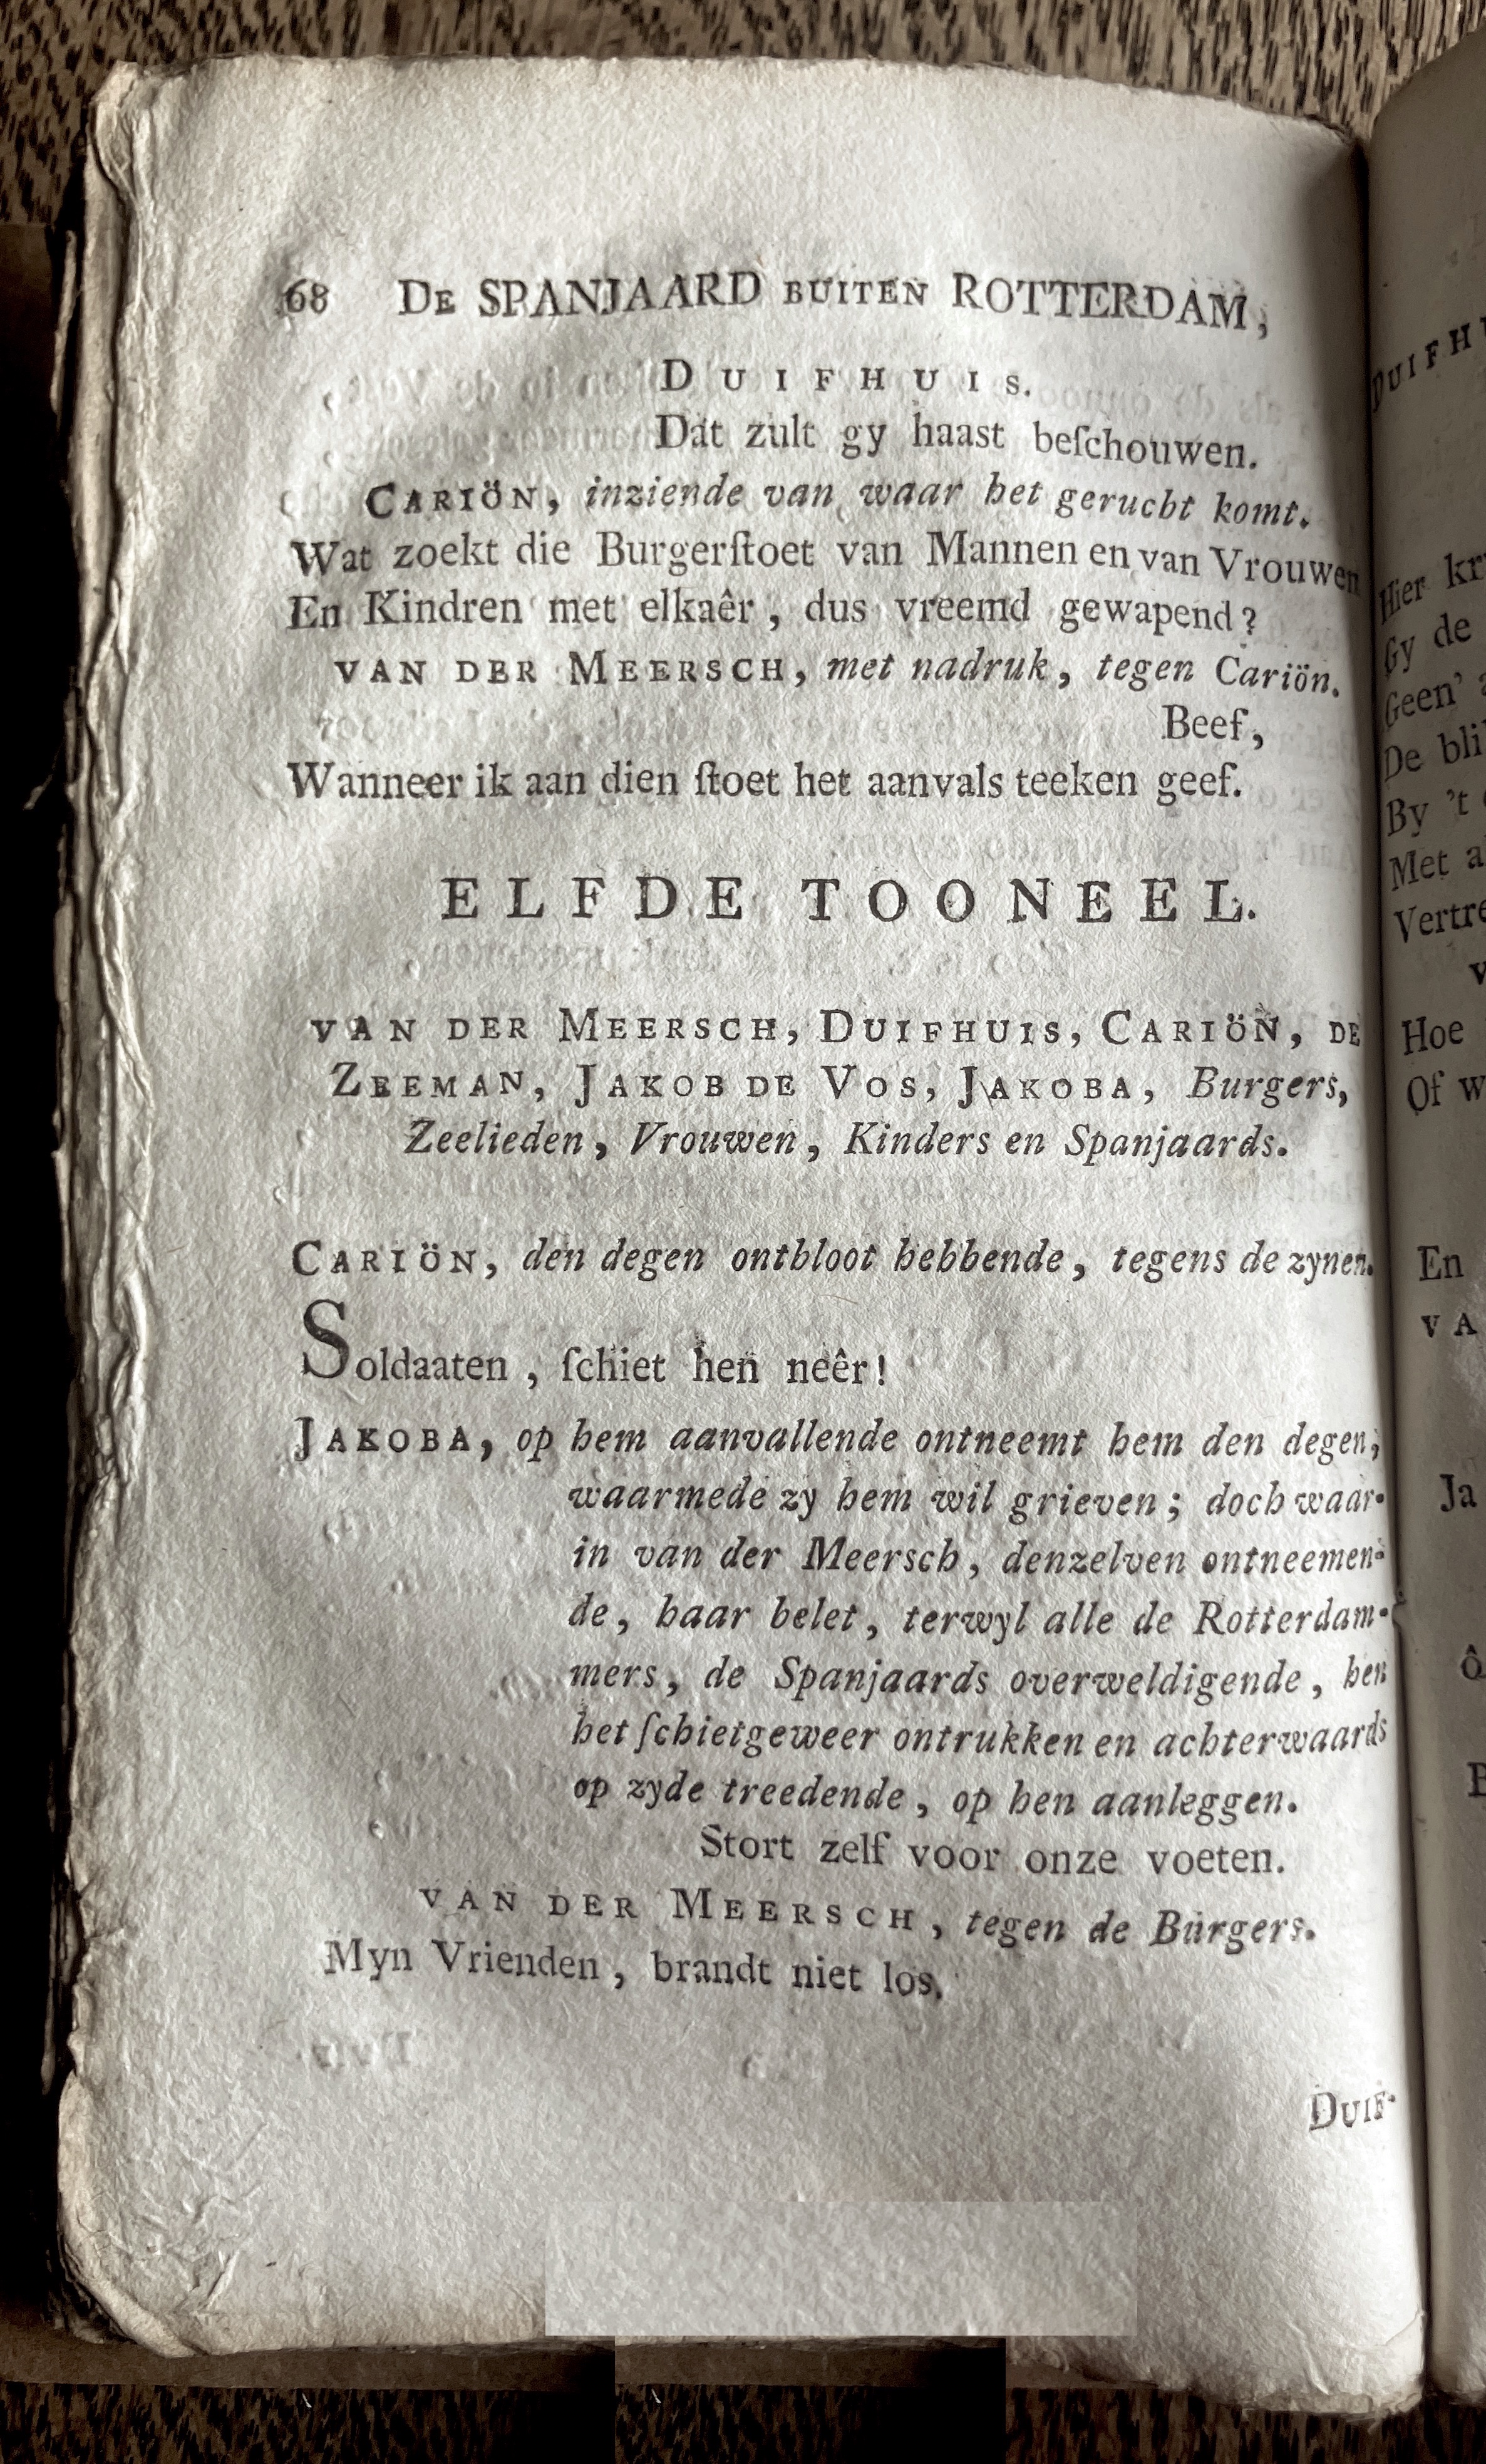 68 De SPANJAARD BUITEN ROTTERDAM,
DUIFHUIS.
Dat zult gy haast beſchouwen.
CARIÖN, inziende van waar het gerucht komt.
Wat zoekt die Burgerſtoet van Mannen en van Vrouwen
En Kindren met elkaêr, dus vreemd gewapend?
VAN DER MEERSCH, met nadruk, tegen Cariön.
Beef,
Wanneer ik aan dien ſtoet het aanvals teeken geef.
ELFDE TOONEEL.
VAN DER MEERSCH, DUIFHUIS, CARIÖN, DE
ZEEMAN, JAKOB DE VOS, JAKOBA, Burgers,
Zeelieden, Vrouwen, Kinders en Spanjaards.
CARIÖN, den degen ontbloot hebbende, tegens de zynen.
Soldaaten, ſchiet hen neêr!
JAKOBA, op hem aanvallende ontneemt hem den degen,
waarmede zy hem wil grieven; doch waar-
in van der Meersch, denzelven ontneemen-
de, haar belet, terwyl alle de Rotterdam-
mers, de Spanjaards overweldigende, hen
het ſchietgeweer ontrukken en achterwaards
op zyde treedende, op hen aanleggen.
Stort zelf voor onze voeten.
VAN DER MEERSCH, tegen de Burgers.
Myn Vrienden, brandt niet los.
DUIF-
DUIFH
Hier
Gy de
Geen'
De
By 't
Met
Hoe
Of
En
VA
Ja